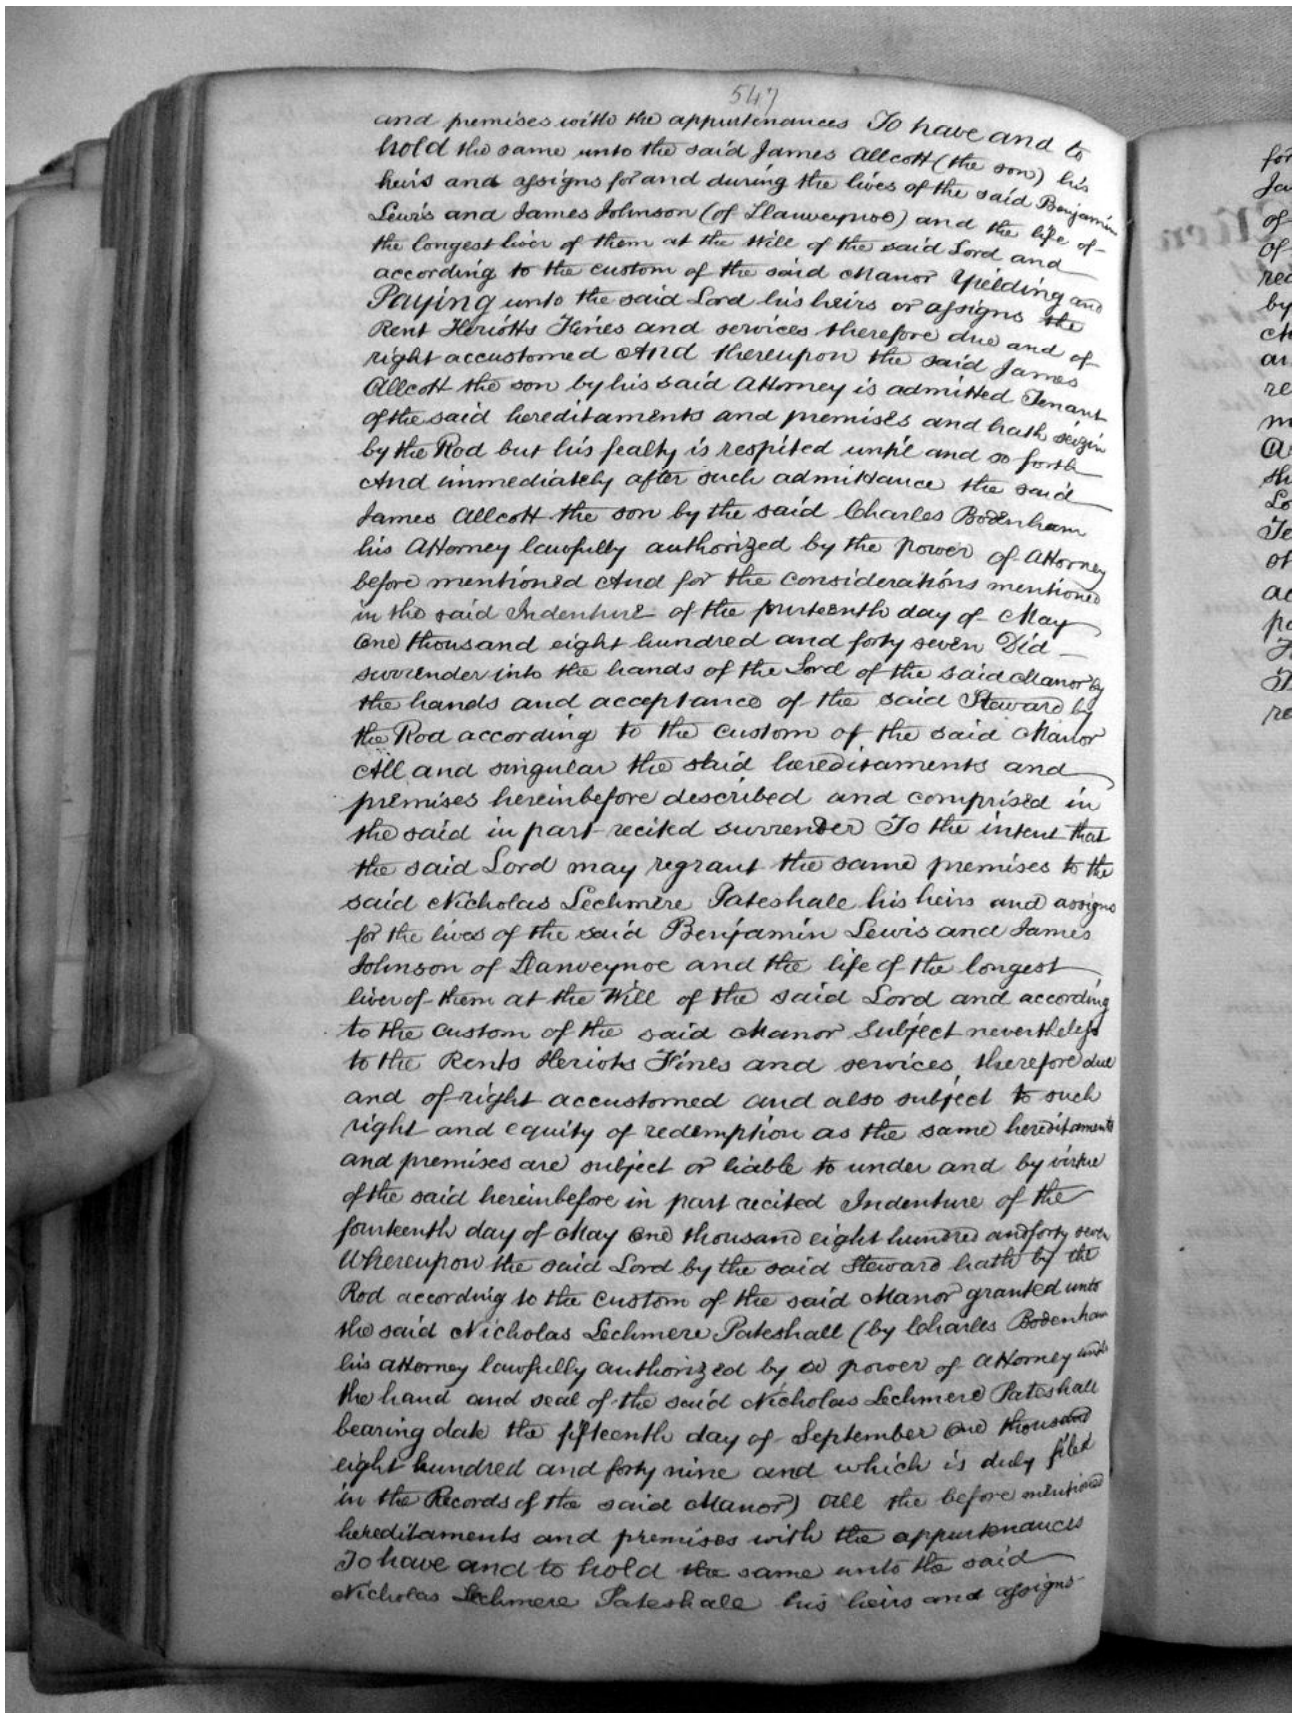 547
and premises with the appurtenances To have and to
hold the same unto the said James Allcott (the son) his
heirs and assigns for and during the lives of the said Benjamin
Lewis and James Johnson (of Llanveynoe) and the life of
the longest liver of them at the Will of the said Lord and
according to the custom of the said Manor Yielding and
Paying unto the said Lord his heirs or assigns the
Rent Heriotts Fines and services therefore due and of
right accustomed And thereupon the said James
Allcott the son by his said Attorney is admitted Tenant
of the said hereditaments and premises and hath seizin
by the Rod but his fealty is respited until and so forth
And immediately after such admittance the said
James Allcott the son by the said Charles Bodenham
his Attorney lawfully authorized by the power of Attorney
before mentioned And for the considerations mentioned
in the said Indenture of the fourteenth day of May
One thousand eight hundred and forty seven Did
surrender into the hands of the Lord of the said Manor by
the hands and acceptance of the said Steward by
the Rod according to the custom of the said Manor
All and singular the said hereditaments and
premises hereinbefore described and comprised in
the said in part recited surrender To the intent that
the said Lord may regrant the same premises to the
said Nicholas Lechmere Pateshall his heirs and assigns
for the lives of the said Benjamin Lewis and James
Johnson of Llanveynoe and the life of the longest
liver of them at the Will of the said Lord and according
to the custom of the said Manor Subject nevertheless
to the Rents Heriots Fines and services, therefore due
and of right accustomed and also subject to such
right and equity of redemption as the same hereditaments
and premises are subject or liable to under and by virtue
of the said hereinbefore in part recited Indenture of the
fourteenth day of May One thousand eight hundred and forty seven
Whereupon the said Lord by the said Steward hath by the
Rod according to the custom of the said Manor granted unto
the said Nicholas Lechmere Pateshall (by Charles Bodenham
his Attorney lawfully authorized by a power of Attorney under
the hand and seal of the said Nicholas Lechmere Pateshall
bearing date the fifteenth day of September One thousand
eight hundred and forty nine and which is duly filed
in the Records of the said Manor) All the before mentioned
hereditaments and premises with the appurtenances
To have and to hold the same unto the said
Nicholas Lechmere Pateshall his heirs and assigns